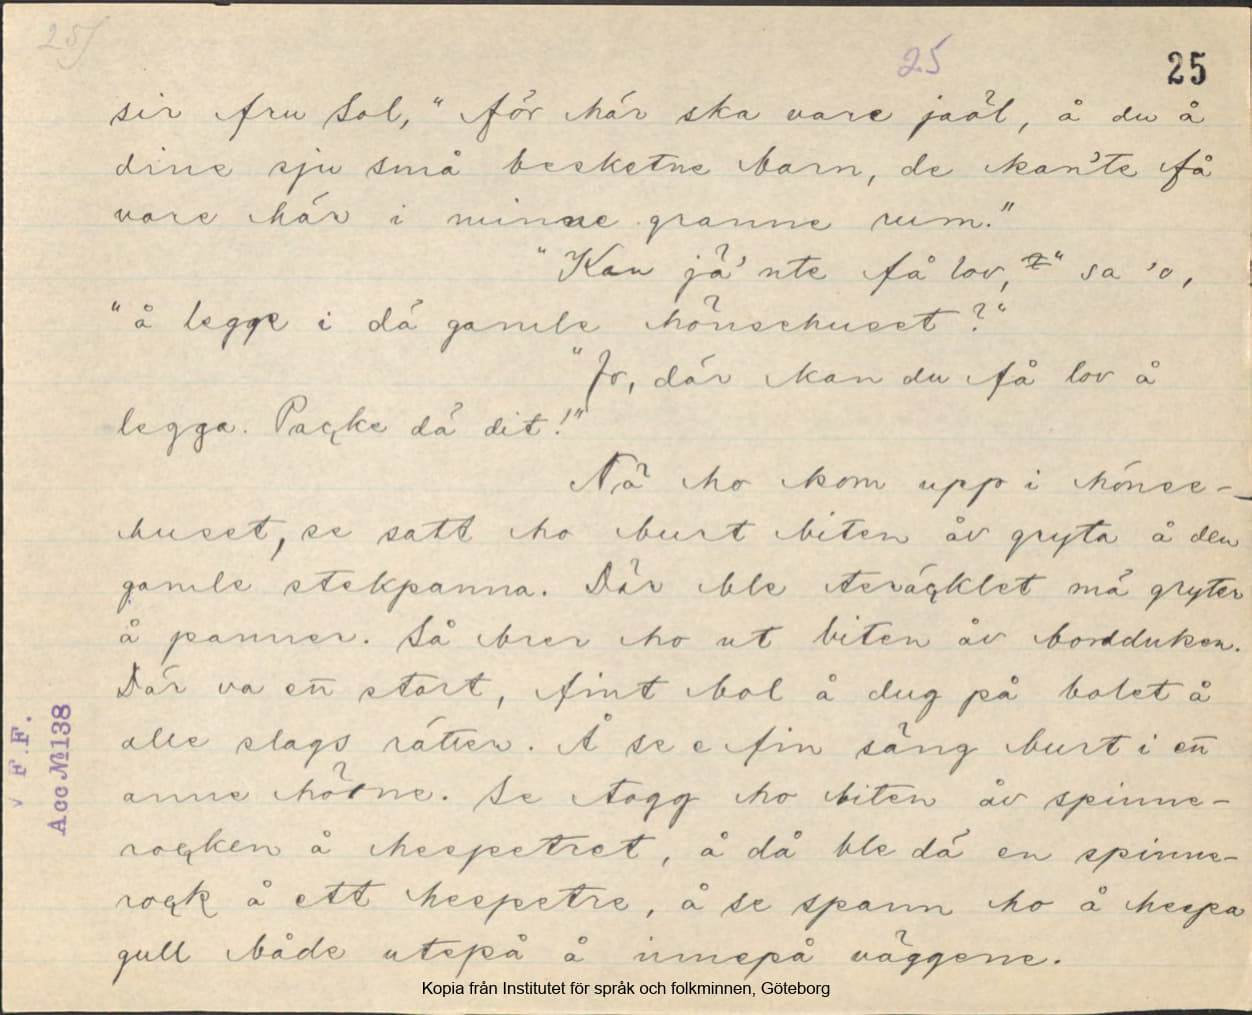 25)
25
25
sir fru Sol," för här ska vare jaäl, å du å
dine sju små besketne barn, de kan'te få
vare här i minne granne rum."
"Kan jä' nte få lov," sa 'o,
"å legge i dä gamle hönsehuset?"
"Jo, där kan du få lov å
legga. Packe dä dit!"
Nä ho kom upp i hönse-
huset, se satt ho burt biten åv gryta å den
gamle stekpanna. Där ble teräcklet mä gryter
å panner. Så brer ho ut biten åv bordduken.
Där va en̄ stort, fint bol å dug på bolet å
alle slags rätter. Å se e fin säng burt i en̄
anne hörne. Se togg ho biten åv spinne-
rocken å hespetret, å då ble dä en spinne-
rock å ett hespetre, å se spann ho å hespa
gull både utepå å innepå väggene.
V F. F.
Acc №138
Kopia från Institutet för språk och folkminnen, Göteborg